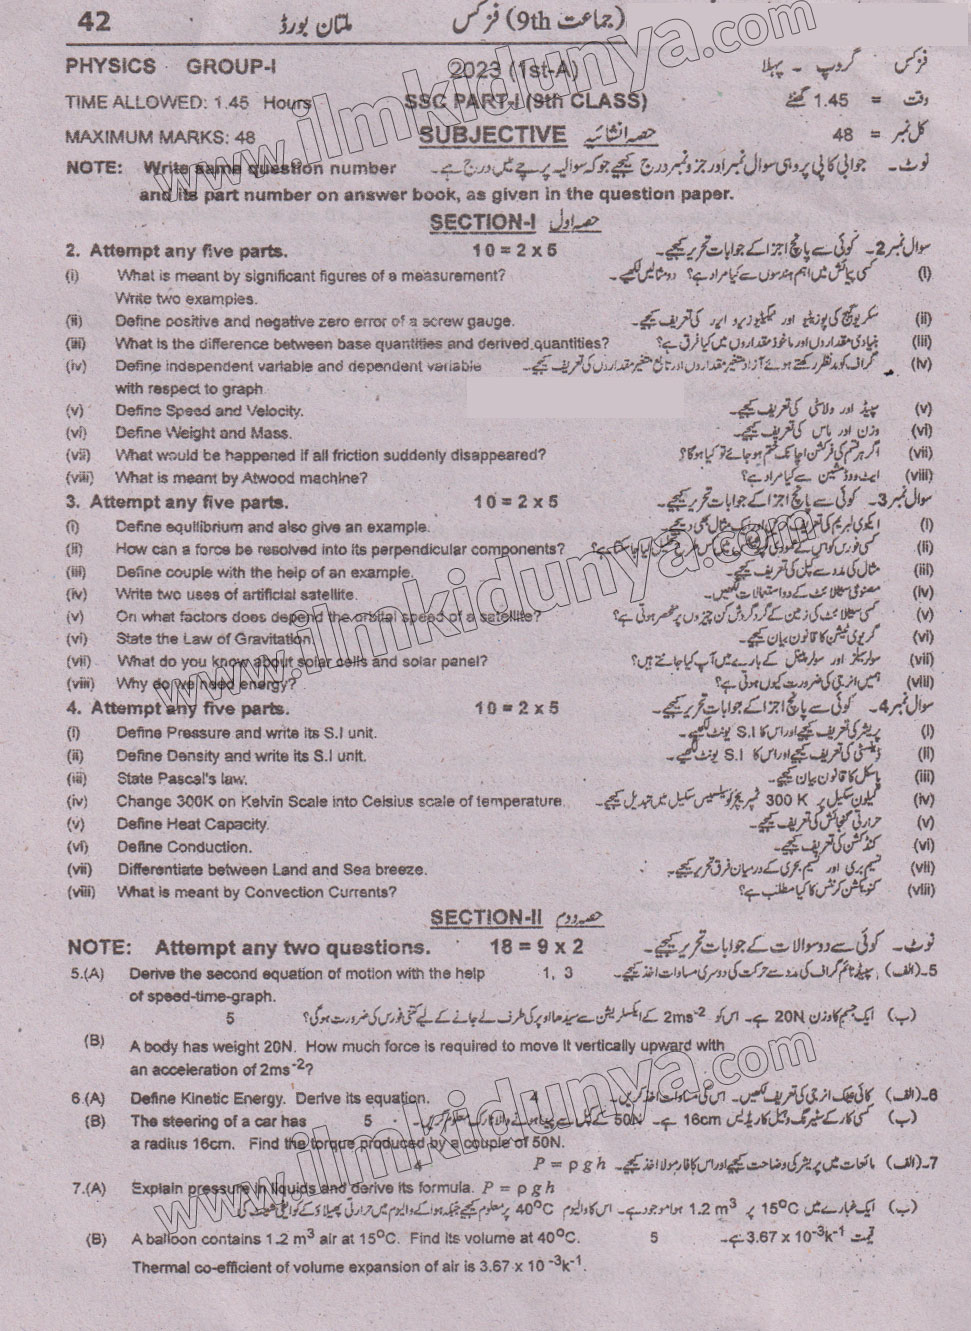 42 ملتان بورڈ (جماعت 9th) فزکس
PHYSICS GROUP-I 2023 (1st-A) فزکس گروپ - پہلا
TIME ALLOWED: 1.45 Hours SSC PART-I (9th CLASS) وقت = 1.45 گھنٹے
MAXIMUM MARKS: 48 SUBJECTIVE حصہ انشائیہ کل نمبر = 48
NOTE: Write same question number نوٹ۔ جوابی کاپی پر وہی سوال نمبر اور جزو نمبر درج کیجیے جو کہ سوالیہ پرچے میں درج ہے۔
and its part number on answer book, as given in the question paper.
SECTION-I حصہ اول
2. Attempt any five parts. 10 = 2 x 5 سوال نمبر 2۔ کوئی سے پانچ اجزا کے جوابات تحریر کیجیے۔
(i) What is meant by significant figures of a measurement? کسی پیمائش میں اہم ہندسوں سے کیا مراد ہے؟ دو مثالیں لکھیے۔ (i)
Write two examples.
(ii) Define positive and negative zero error of a screw gauge. سکریو گیج کی پوزیٹیو اور نیگیٹیو زیرو ایرر کی تعریف کیجیے۔ (ii)
(iii) What is the difference between base quantities and derived quantities? بنیادی مقداروں اور ماخوذ مقداروں میں کیا فرق ہے؟ (iii)
(iv) Define independent variable and dependent variable گراف کو مدنظر رکھتے ہوئے آزاد متغیر مقداروں اور تابع متغیر مقداروں کی تعریف کیجیے۔ (iv)
with respect to graph
(v) Define Speed and Velocity. سپیڈ اور ولاسٹی کی تعریف کیجیے۔ (v)
(vi) Define Weight and Mass. وزن اور ماس کی تعریف کیجیے۔ (vi)
(vii) What would be happened if all friction suddenly disappeared? اگر ہر قسم کی فرکشن اچانک ختم ہو جائے تو کیا ہوگا؟ (vii)
(viii) What is meant by Atwood machine? ایٹ ووڈ مشین سے کیا مراد ہے؟ (viii)
3. Attempt any five parts. 10 = 2 x 5 سوال نمبر 3۔ کوئی سے پانچ اجزا کے جوابات تحریر کیجیے۔
(i) Define equilibrium and also give an example. ایکوی لبریم کی تعریف مثال بھی دیجیے۔ (i)
(ii) How can a force be resolved into its perpendicular components? کسی فورس کو اس کے عمودی میں کس طرح تحلیل کیا جا سکتا ہے؟ (ii)
(iii) Define couple with the help of an example. مثال کی مدد سے کپل کی تعریف کیجیے۔ (iii)
(iv) Write two uses of artificial satellite. مصنوعی سیٹلائٹ کے دو استعمالات لکھیں۔ (iv)
(v) On what factors does depend the orbital speed of a satellite? کسی سیٹلائٹ کی زمین کے گرد گردش کن چیزوں پر منحصر ہوتی ہے؟ (v)
(vi) State the Law of Gravitation. گریوی ٹیشن کا قانون بیان کیجیے۔ (vi)
(vii) What do you know about solar cells and solar panel? سولر سیلز اور سولر پینل کے بارے میں آپ کیا جانتے ہیں؟ (vii)
(viii) Why do we need energy? ہمیں انرجی کی ضرورت کیوں ہوتی ہے؟ (viii)
4. Attempt any five parts. 10 = 2 x 5 سوال نمبر 4۔ کوئی سے پانچ اجزا کے جوابات تحریر کیجیے۔
(i) Define Pressure and write its S.I unit. پریشر کی تعریف کیجیے اور اس کا S.I یونٹ لکھیے۔ (i)
(ii) Define Density and write its S.I unit. ڈینسٹی کی تعریف کیجیے اور اس کا S.I یونٹ لکھیے۔ (ii)
(iii) State Pascal's law. پاسکل کا قانون بیان کیجیے۔ (iii)
(iv) Change 300K on Kelvin Scale into Celsius scale of temperature. کیلون سکیل پر 300 K ٹمپریچر کو سیلسیئس سکیل میں تبدیل کیجیے۔ (iv)
(v) Define Heat Capacity. حرارتی گنجائش کی تعریف کیجیے۔ (v)
(vi) Define Conduction. کنڈکشن کی تعریف کیجیے۔ (vi)
(vii) Differentiate between Land and Sea breeze. نسیم بری اور نسیم بحری کے درمیان فرق تحریر کیجیے۔ (vii)
(viii) What is meant by Convection Currents? کنویکشن کرنٹس کا کیا مطلب ہے؟ (viii)
SECTION-II حصہ دوم
NOTE: Attempt any two questions. 18 = 9 x 2 نوٹ۔ کوئی سے دو سوالات کے جوابات تحریر کیجیے۔
5.(A) Derive the second equation of motion with the help 1, 3 5۔(الف) سپیڈ ٹائم گراف کی مدد سے حرکت کی دوسری مساوات اخذ کیجیے۔
of speed-time-graph.
5 (ب) ایک جسم کا وزن 20N ہے۔ اس کو 2ms⁻² کے ایکسلریشن سے سیدھا اوپر کی طرف لے جانے کے لیے کتنی فورس کی ضرورت ہوگی؟
(B) A body has weight 20N. How much force is required to move it vertically upward with
an acceleration of 2ms⁻²?
6.(A) Define Kinetic Energy. Derive its equation. 4 6۔(الف) کائی نیٹک انرجی کی تعریف لکھیں۔ اس کی مساوات اخذ کریں۔
(B) The steering of a car has 5 (ب) کسی کار کے سٹیرنگ وہیل کا ریڈیس 16cm ہے۔ 50N کے کپل سے پیدا ہونے والا ٹارک معلوم کریں۔
a radius 16cm. Find the torque produced by a couple of 50N.
4 7۔(الف) مائعات میں پریشر کی وضاحت کیجیے اور اس کا فارمولا اخذ کیجیے۔ P = ρ g h
7.(A) Explain pressure in liquids and derive its formula. P = ρ g h
(ب) ایک غبارے میں 15⁰C پر 1.2 m³ ہوا موجود ہے۔ اس کا والیوم 40⁰C پر معلوم کیجیے جبکہ ہوا کے والیوم میں حرارتی پھیلاؤ کے کی
(B) A balloon contains 1.2 m³ air at 15⁰C. Find its volume at 40⁰C. 5 قیمت 3.67 x 10⁻³k⁻¹ ہے۔
Thermal co-efficient of volume expansion of air is 3.67 x 10⁻³k⁻¹.
www.ilmkidunya.com
www.ilmkidunya.com
www.ilmkidunya.com